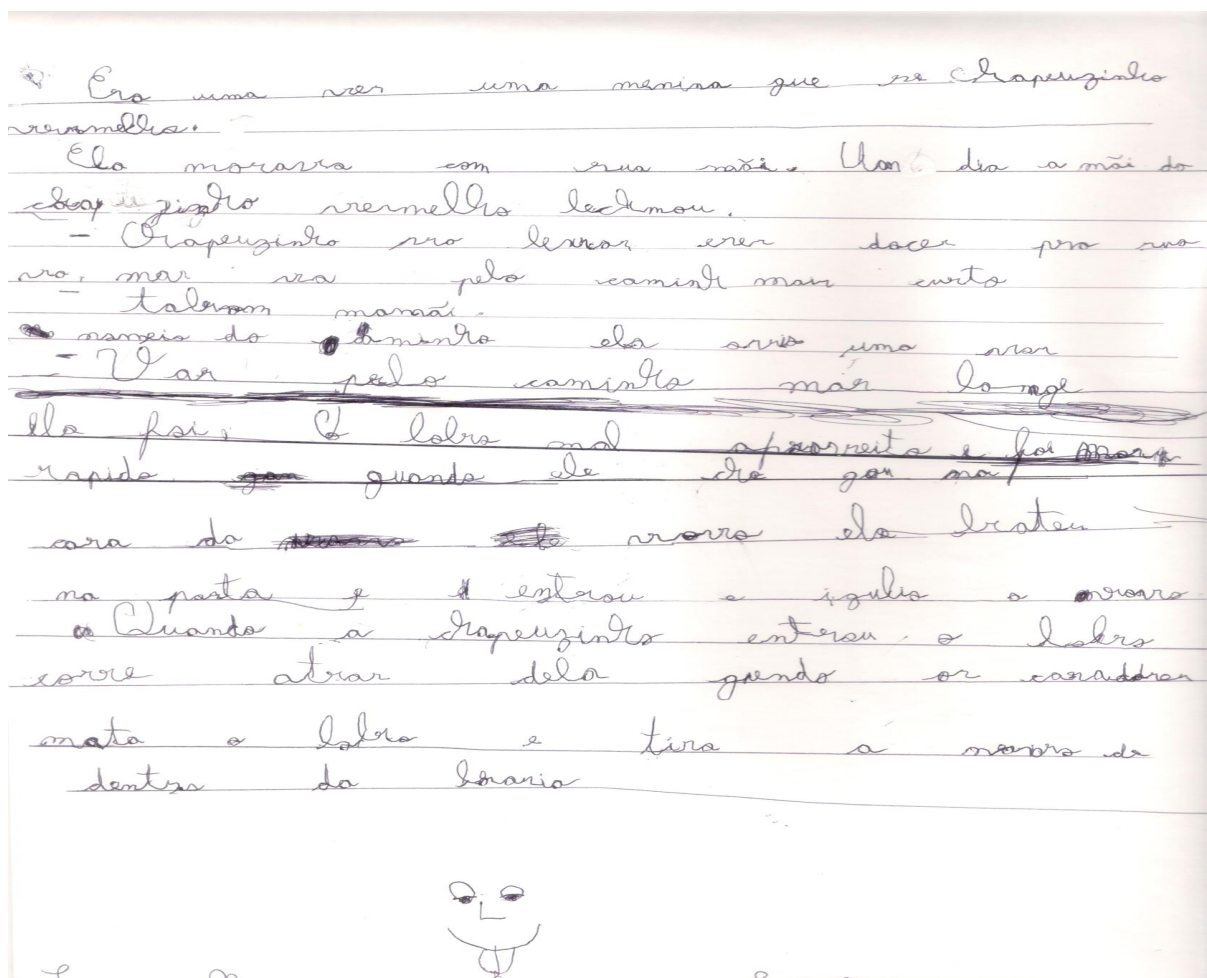 Era uma ves uma menina que se Chapeuzinho
vermelho.
Ela morava com sua mãi. Um dia a mãi do
chapeuzinho vermelho lechmou.
- Chapeuzinho vro levar eses doces pra sua
vro, mas va pelo caminh mais curto
- tabom mamãi.
nomeio do caminho ela ouvio uma vos
- Var pelo caminho más longe
ela foi, O lobro mal aproveito e foi mas
rapido quando ele che gou na
casa da vovro ela brateu
na porta e entrou e igulio a vovro
Quando a chapeuzinho entrou o lobro
corre atras dela quendo os casaddres
mata o lobro e tira a vovro de
dentro da braria